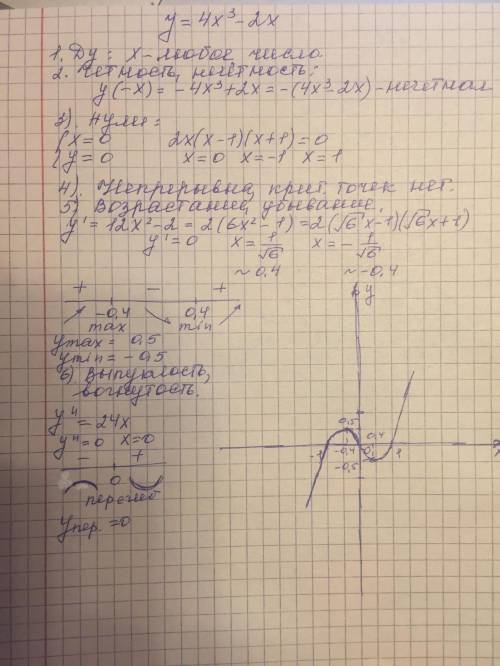 y = 4x³ - 2x
1. Dy: x - любое число
2. Четность, нечетность:
y(-x) = -4x³+2x = -(4x³-2x) - нечетная
3). Нули:
{ x = 0 2x(x-1)(x+1) = 0
{ y = 0 x = 0 x = -1 x = 1
4). Непрерывна, крит. точек нет.
5) Возрастание, убывание.
y' = 12x² - 2 = 2(6x²-1) = 2(√6x-1)(√6x+1)
y' = 0 x = 1/√6 x = -1/√6
~0,4 ~-0,4
+ - +
-0,4 0,4
max min
ymax = 0,5
ymin = -0,5
6) Выпуклость,
вогнутость.
y'' = 24x
y'' = 0 x = 0
- +
0
перегиб
yпер. = 0
y
0,5
0,4
-1 -0,4 0 1 x
-0,5